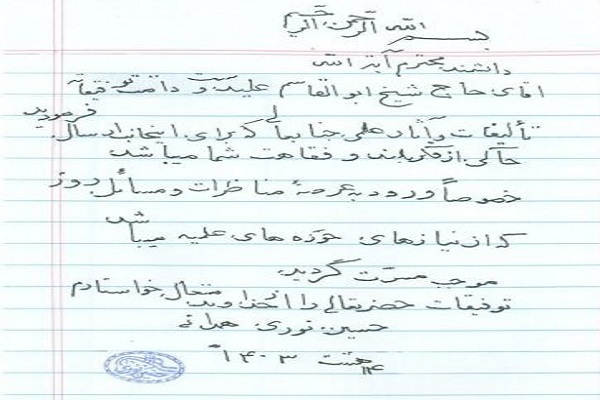 بسم الله الرحمن الرحیم
دانشمند محترم آیة الله
آقای حاج شیخ ابوالقاسم علیدوست دامت توفیقاته
تألیفات و آثار علمی جنابعالی که برای اینجانب ارسال فرمودید
حاکی از فکر بلند و فقاهت شما میباشد
خصوصاً ورود به عرصهٔ مناظرات و مسائل روز
که از نیازهای حوزه های علمیه میباشد
موجب مسرّت گردید
توفیقات حضرتعالی را از خداوند متعال خواستارم
حسین نوری همدانی
۱۴۰۳